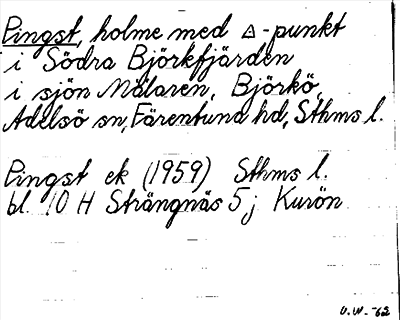 Pingst, holme med △-punkt
i Södra Björkfjärden
i sjön Mälaren, Björkö,
Adelsö sn, Färentuna hd, Sthms l.
Pingst ek (1959) Sthms l.
bl. 10 H Strängnäs 5 j Kurön
U.W.-62